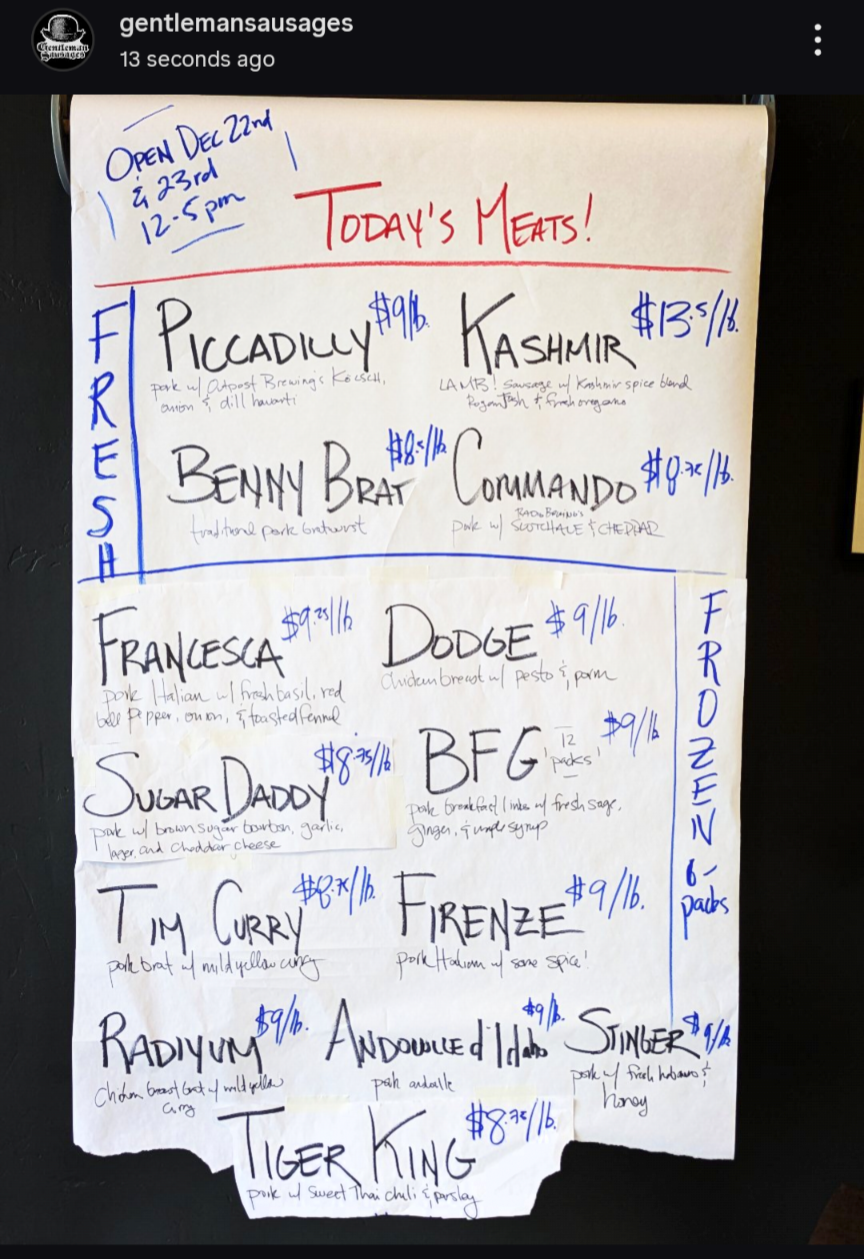 gentlemansausages
13 seconds ago
Gentleman
Sausages
OPEN DEC 22nd
& 23rd
12-5 pm
TODAY'S MEATS!
FRESH
PICCADILLY $9/lb.
pork w/ Outpost Brewing's Köcsch,
onion & dill havarti
KASHMIR $13.5/lb.
LAMB! sausage w/ Kashmir spice blend
Rogan Josh & fresh oregano
BENNY BRAT $8.5/lb
traditional pork bratwurst
COMMANDO $8.75/lb.
pork w/ SCOTCH ALE & CHEDDAR
FROZEN
6-
packs
FRANCESCA $9.25/lb
pork Italian w/ fresh basil, red
bell pepper, onion, & toasted fennel
DODGE $9/lb.
Chicken breast w/ pesto & parm
SUGAR DADDY $8.75/lb
pork w/ brown sugar bourbon, garlic,
lager, and cheddar cheese
BFG 12 packs $9/lb
pork breakfast links w/ fresh sage,
ginger, & maple syrup
TIM CURRY $8.75/lb.
pork brat w/ mild yellow curry
FIRENZE $9/lb.
pork Italian w/ some spice!
RADIYUM $9/lb.
Chicken breast brat w/ mild yellow
curry
ANDOUILLE d'Idaho $9/lb.
pork andouille
STINGER $9/lb
pork w/ fresh habanero &
honey
TIGER KING $8.75/lb.
pork w/ sweet Thai chili & parsley